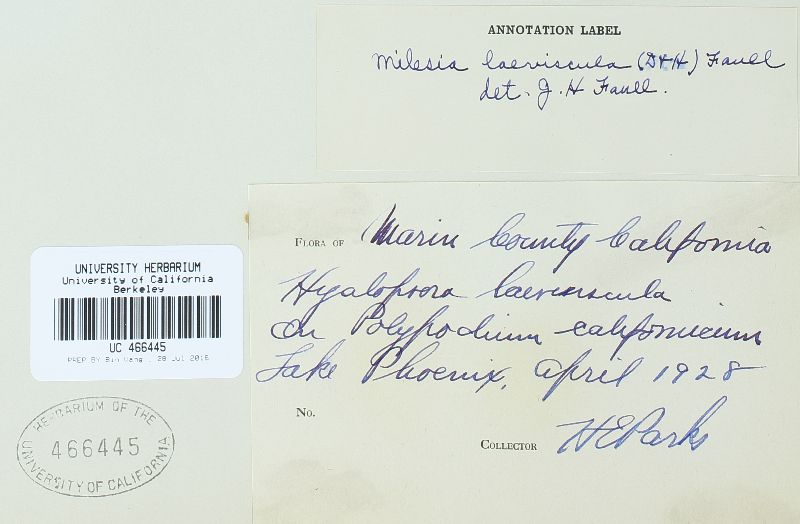 ANNOTATION LABEL
Milesia laeviscula (D+H) Faull
det. J. H Faull.
FLORA OF Marin County California
Hyalopsora laeviuscula
On Polypodium californicum
Lake Phoenix, april 1928
No.
COLLECTOR HEParks
UNIVERSITY HERBARIUM
University of California
Berkeley
UC 466445
PREP BY 28 Jul 2016
HERBARIUM OF THE
466445
UNIVERSITY OF CALIFORNIA